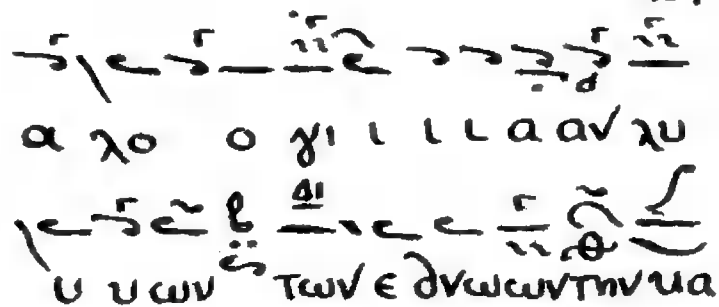 α λο ο γι ι ι ι α αν λυ
υ υων των ε θνωωντην κα